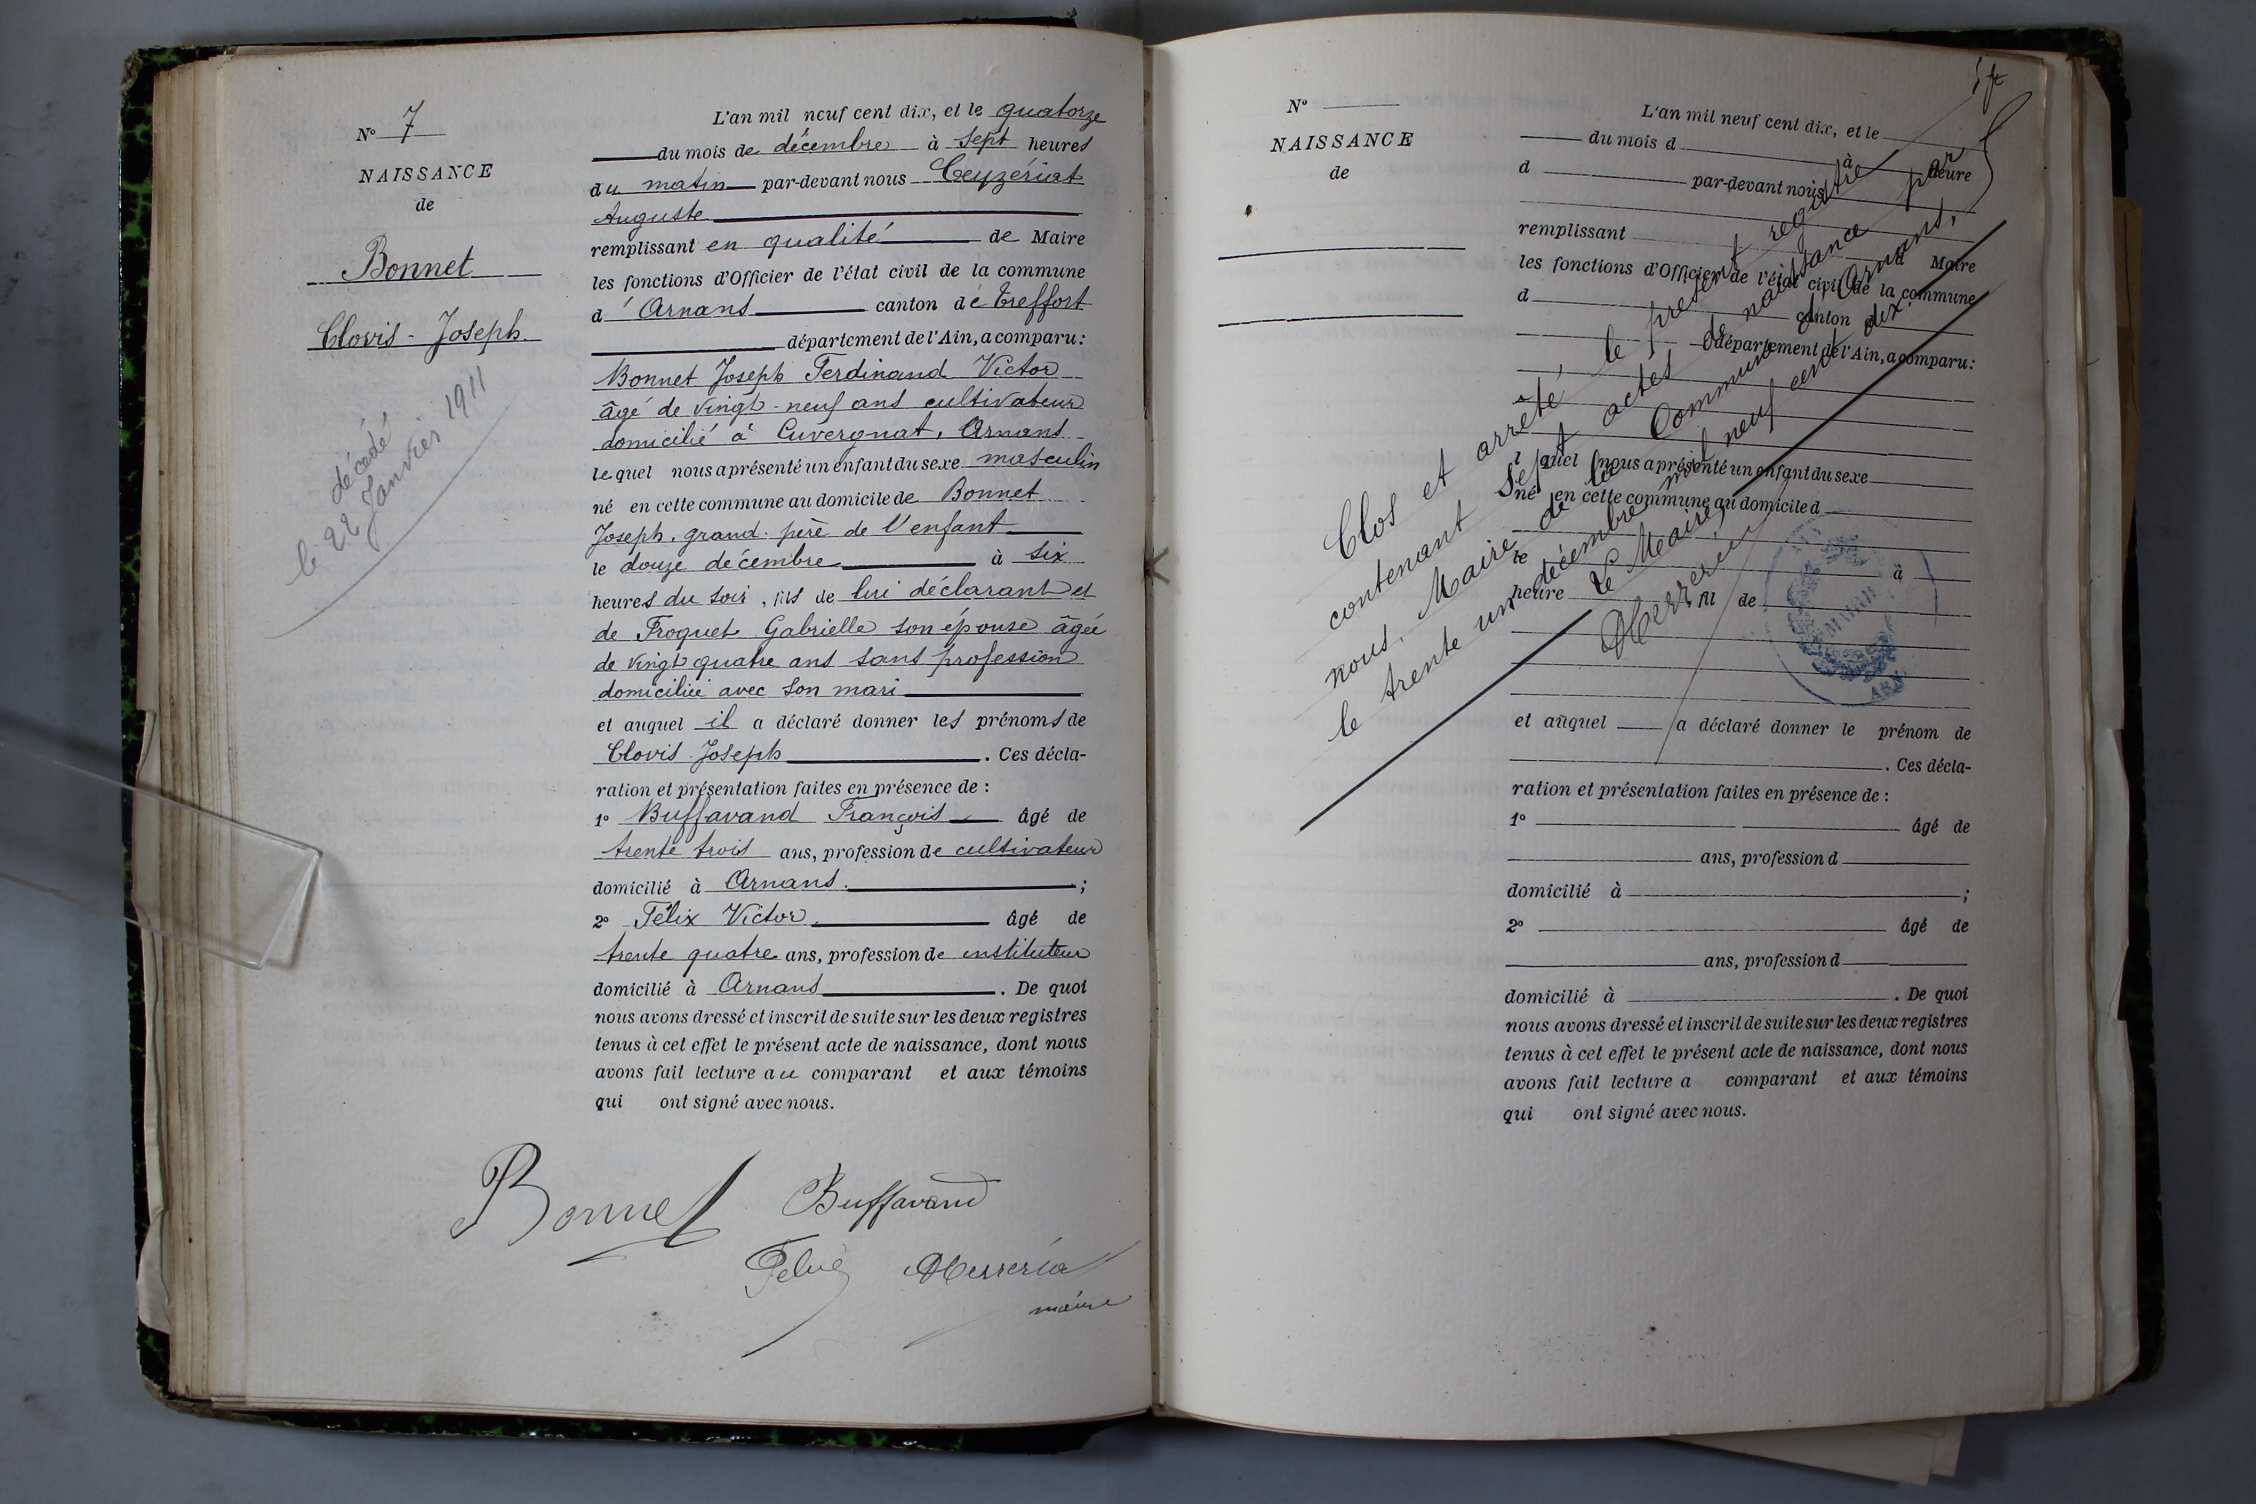 N° 7
NAISSANCE
de
Bonnet
Clovis - Joseph.
décédé
le 22 Janvier 1911
L'an mil neuf cent dix, et le quatorze
du mois de décembre à sept heures
du matin par-devant nous Ceyzériat
Auguste
remplissant en qualité de Maire
les fonctions d'Officier de l'état civil de la commune
d'Arnans canton de Treffort
département de l'Ain, a comparu:
Bonnet Joseph Ferdinand Victor
âgé de vingt-neuf ans cultivateur
domicilié à Cuvergnat, Arnans
lequel nous a présenté un enfant du sexe masculin
né en cette commune au domicile de Bonnet
Joseph, grand-père de l'enfant
le douze décembre à six
heures du soir, fils de lui déclarant et
de Froquet Gabrielle son épouse âgée
de vingt quatre ans sans profession
domiciliée avec son mari
et auquel il a déclaré donner les prénoms de
Clovis Joseph. Ces décla-
ration et présentation faites en présence de :
1° Buffavand François âgé de
trente trois ans, profession de cultivateur
domicilié à Arnans. ;
2° Félix Victor. âgé de
trente quatre ans, profession de instituteur
domicilié à Arnans. De quoi
nous avons dressé et inscrit de suite sur les deux registres
tenus à cet effet le présent acte de naissance, dont nous
avons fait lecture au comparant et aux témoins
qui ont signé avec nous.
Bonnet Buffavand
Félix
maire
N°
NAISSANCE
de
L'an mil neuf cent dix, et le
du mois d à heure
d par-devant nous
remplissant d Maire
les fonctions d'Officier de l'état civil de la commune
d canton d
département de l'Ain, a comparu:
l quel nous a présenté un enfant du sexe
né en cette commune au domicile d
le à
heure fil de
et auquel a déclaré donner le prénom de
. Ces décla-
ration et présentation faites en présence de :
1° âgé de
ans, profession d
domicilié à ;
2° âgé de
ans, profession d
domicilié à . De quoi
nous avons dressé et inscrit de suite sur les deux registres
tenus à cet effet le présent acte de naissance, dont nous
avons fait lecture a comparant et aux témoins
qui ont signé avec nous.
Clos et arrêté, le présent registre
contenant sept actes de naissance par
nous, Maire de la Commune d'Arnans,
le trente un décembre mil neuf cent dix.
Le Maire,
MAIRIE